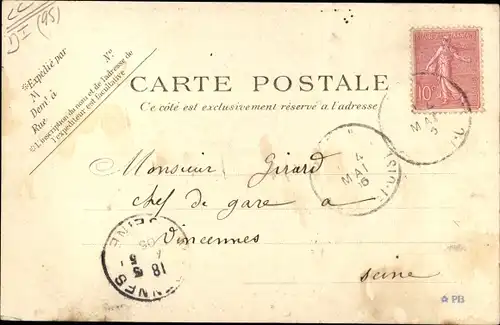 DI (95)
Expédié par
M
Demt à
Rue
No
L'inscription du nom et de l'adresse de
l'expéditeur est facultative
CARTE POSTALE
Ce côté est exclusivement réservé à l'adresse
10
MAI
4
MAI
Monsieur Girard
Chef de gare a
Vincennes
Seine
SEINE
18
5
05
ENNES
PB